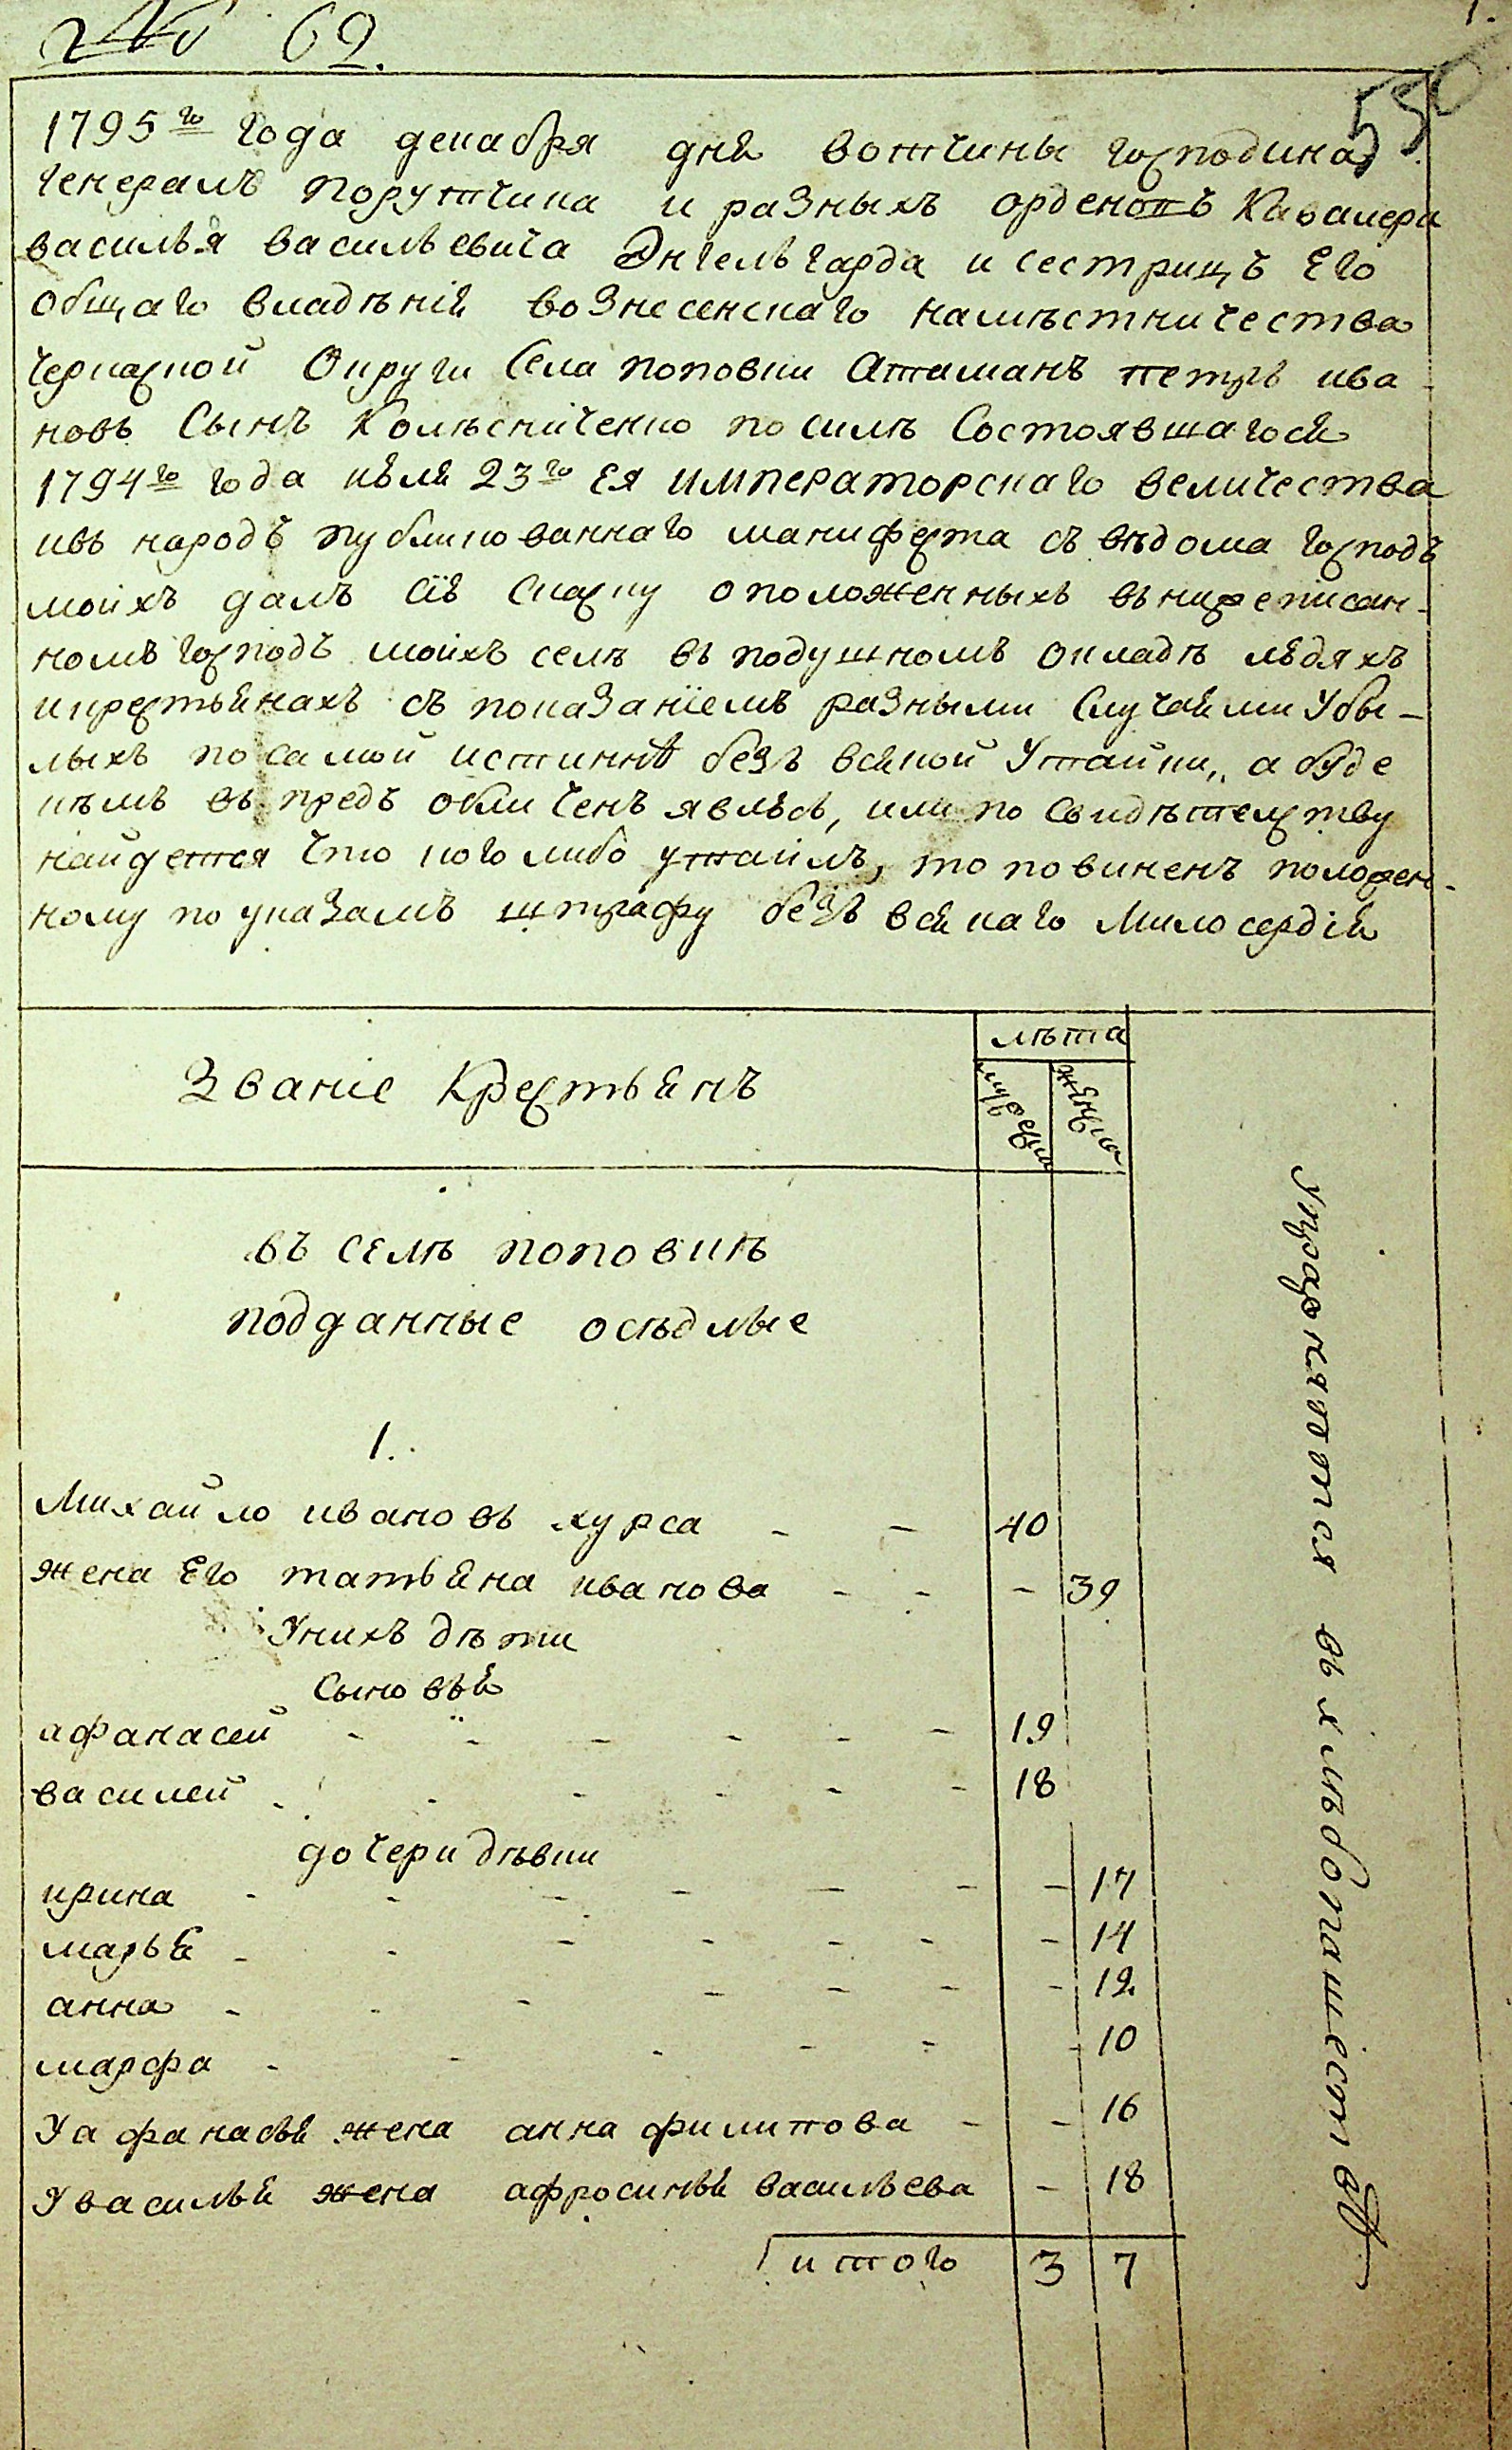 № 62.
1.
550
1795го года декабря дня вотчины господина
генералъ порутчика и разныхъ орденовъ Кавалера
василья васильевича Энгельгарда и сестрицъ Его
общаго владѣнія вознесенскаго намѣстничества
Черкаской Округи Села поповки Атаманъ петръ ива
новъ Сынъ Колѣсніченко по силѣ Состоявшагося
1794го года июля 23го Ея императорскаго величества
ивъ народъ публикованнаго манифеста съ вѣдома господъ
моихъ далъ сію скаску о положенныхъ въ нижеписан-
номъ господъ моихъ селѣ въ подушномъ окладѣ людяхъ
и крестьянахъ съ показаніемъ разными Случаями Убы-
лыхъ по самой истиннѣ безъ всякой Утайки, а буде
кѣмъ въ предъ обличенъ явлюсь, или по свидѣтелству
найдется Что кого либо утаилъ, то повиненъ положен-
ному по указамъ штрафу безъ всякаго Милосердія
Званіе Крестьянъ
лѣта
мужеска
женска
въ селѣ поповкѣ
подданные осѣдлые
1.
Михайло ивановъ хурса - - 40
жена Его татьяна иванова - - - 39
Унихъ дѣти
Сыновья
афанасей - - - - - - 19
василей - - - - - - 18
дочери дѣвки
ирина - - - - - - - 17
марья - - - - - - - 14
анна - - - - - - - 12.
марфа - - - - - - 10
У афанасья жена анна филипова - - 16
У василья жена афросинья васильева - 18
итого 3 7
Упражняются въ хлѣбопашестве